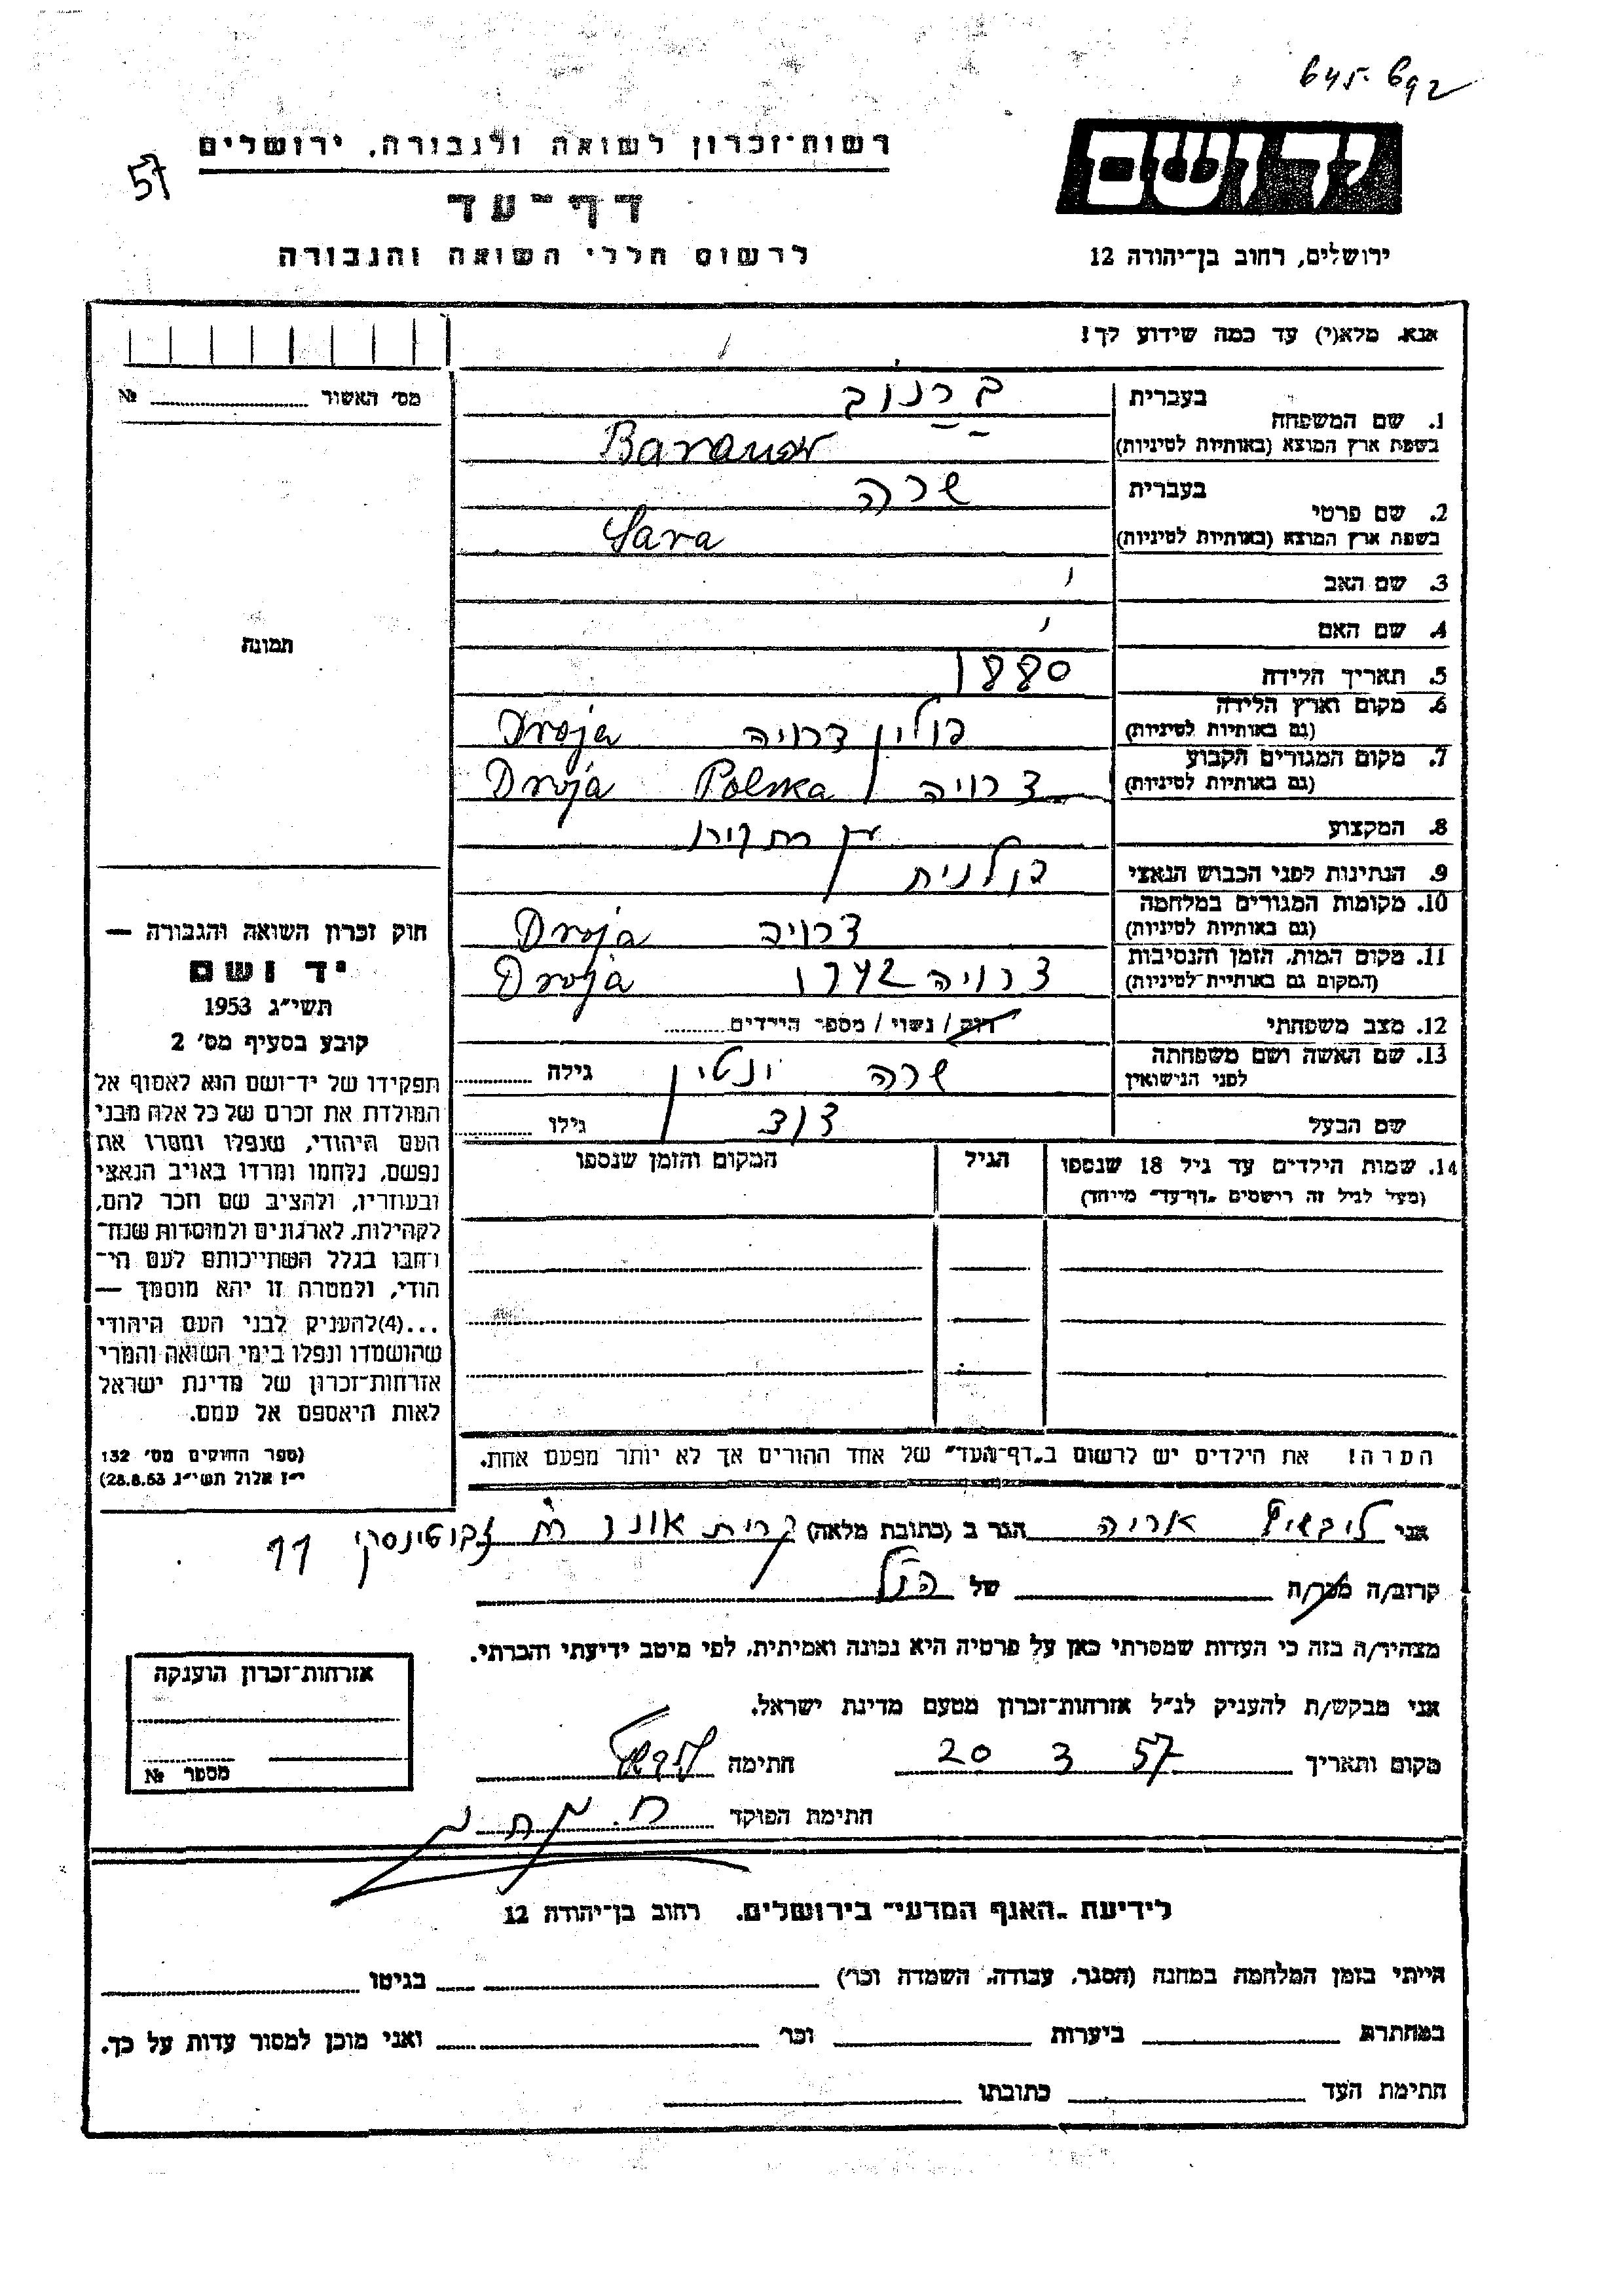 645-692
רשות־זכרון לשואה ולגבורה, ירושלים
57
דף־עד
לרשום חללי השואה והגבורה
יד ושם
ירושלים, רחוב בן־יהודה 12
אנא, מלא(י) עד כמה שידוע לך!
מס׳ האשור № 
תמונה
1. שם המשפחה
בעברית ברנוב
בשפת ארץ המוצא (באותיות לטיניות) Baranow
2. שם פרטי
בעברית שרה
בשפת ארץ המוצא (באותיות לטיניות) Sara
3. שם האב
4. שם האם
5. תאריך הלידה 1880
6. מקום וארץ הלידה
(גם באותיות לטיניות) פולין דרויה Droja
7. מקום המגורים הקבוע
(גם באותיות לטיניות) דרויה Polska Droja
8. המקצוע
9. הנתינות לפני הכבוש הנאצי פולנית
10. מקומות המגורים במלחמה
(גם באותיות לטיניות) דרויה Droja
11. מקום המות, הזמן והנסיבות
(המקום גם באותיות לטיניות) דרויה 1942 Droja
12. מצב משפחתי רווק / נשוי / מספר הילדים
13. שם האשה ושם משפחתה
לפני הנישואין שרה ונטין גילה
שם הבעל דוד גילו
14. שמות הילדים עד גיל 18 שנספו הגיל המקום והזמן שנספו
(מעל לגיל זה רושמים „דף־עד״ מיוחד)
הערה! את הילדים יש לרשום ב„דף־העד״ של אחד ההורים אך לא יותר מפעם אחת.
חוק זכרון השואה והגבורה —
יד ושם
תשי״ג 1953
קובע בסעיף מס׳ 2
תפקידו של יד־ושם הוא לאסוף אל
המולדת את זכרם של כל אלה מבני
העם היהודי, שנפלו ומסרו את
נפשם, נלחמו ומרדו באויב הנאצי
ובעוזריו, ולהציב שם וזכר להם,
לקהילות, לארגונים ולמוסדות שנח־
רבו בגלל השתייכותם לעם הי־
הודי, ולמטרה זו יהא מוסמך —
...(4)להעניק לבני העם היהודי
שהושמדו ונפלו בימי השואה והמרי
אזרחות־זכרון של מדינת ישראל
לאות היאספם אל עמם.
(ספר החוקים מס׳ 132
י״ז אלול תשי״ג 28.8.53)
אני ליבשיץ אריה הגר ב (כתובת מלאה) קרית אונו רח׳ זבוטינסקי 11
קרוב/ה מכר/ה של הנ״ל
מצהיר/ה בזה כי העדות שמסרתי כאן על פרטיה היא נכונה ואמיתית, לפי מיטב ידיעתי והכרתי.
אני מבקש/ת להעניק לנ״ל אזרחות־זכרון מטעם מדינת ישראל.
מקום ותאריך 20 3 57 חתימה
חתימת הפוקד
אזרחות־זכרון הוענקה
מספר №
לידיעת „האגף המדעי״ בירושלים, רחוב בן־יהודה 12
הייתי בזמן המלחמה במחנה (הסגר, עבודה, השמדה וכו׳) בגיטו
במחתרת ביערות וכו׳ ואני מוכן למסור עדות על כך.
חתימת העד כתובתו